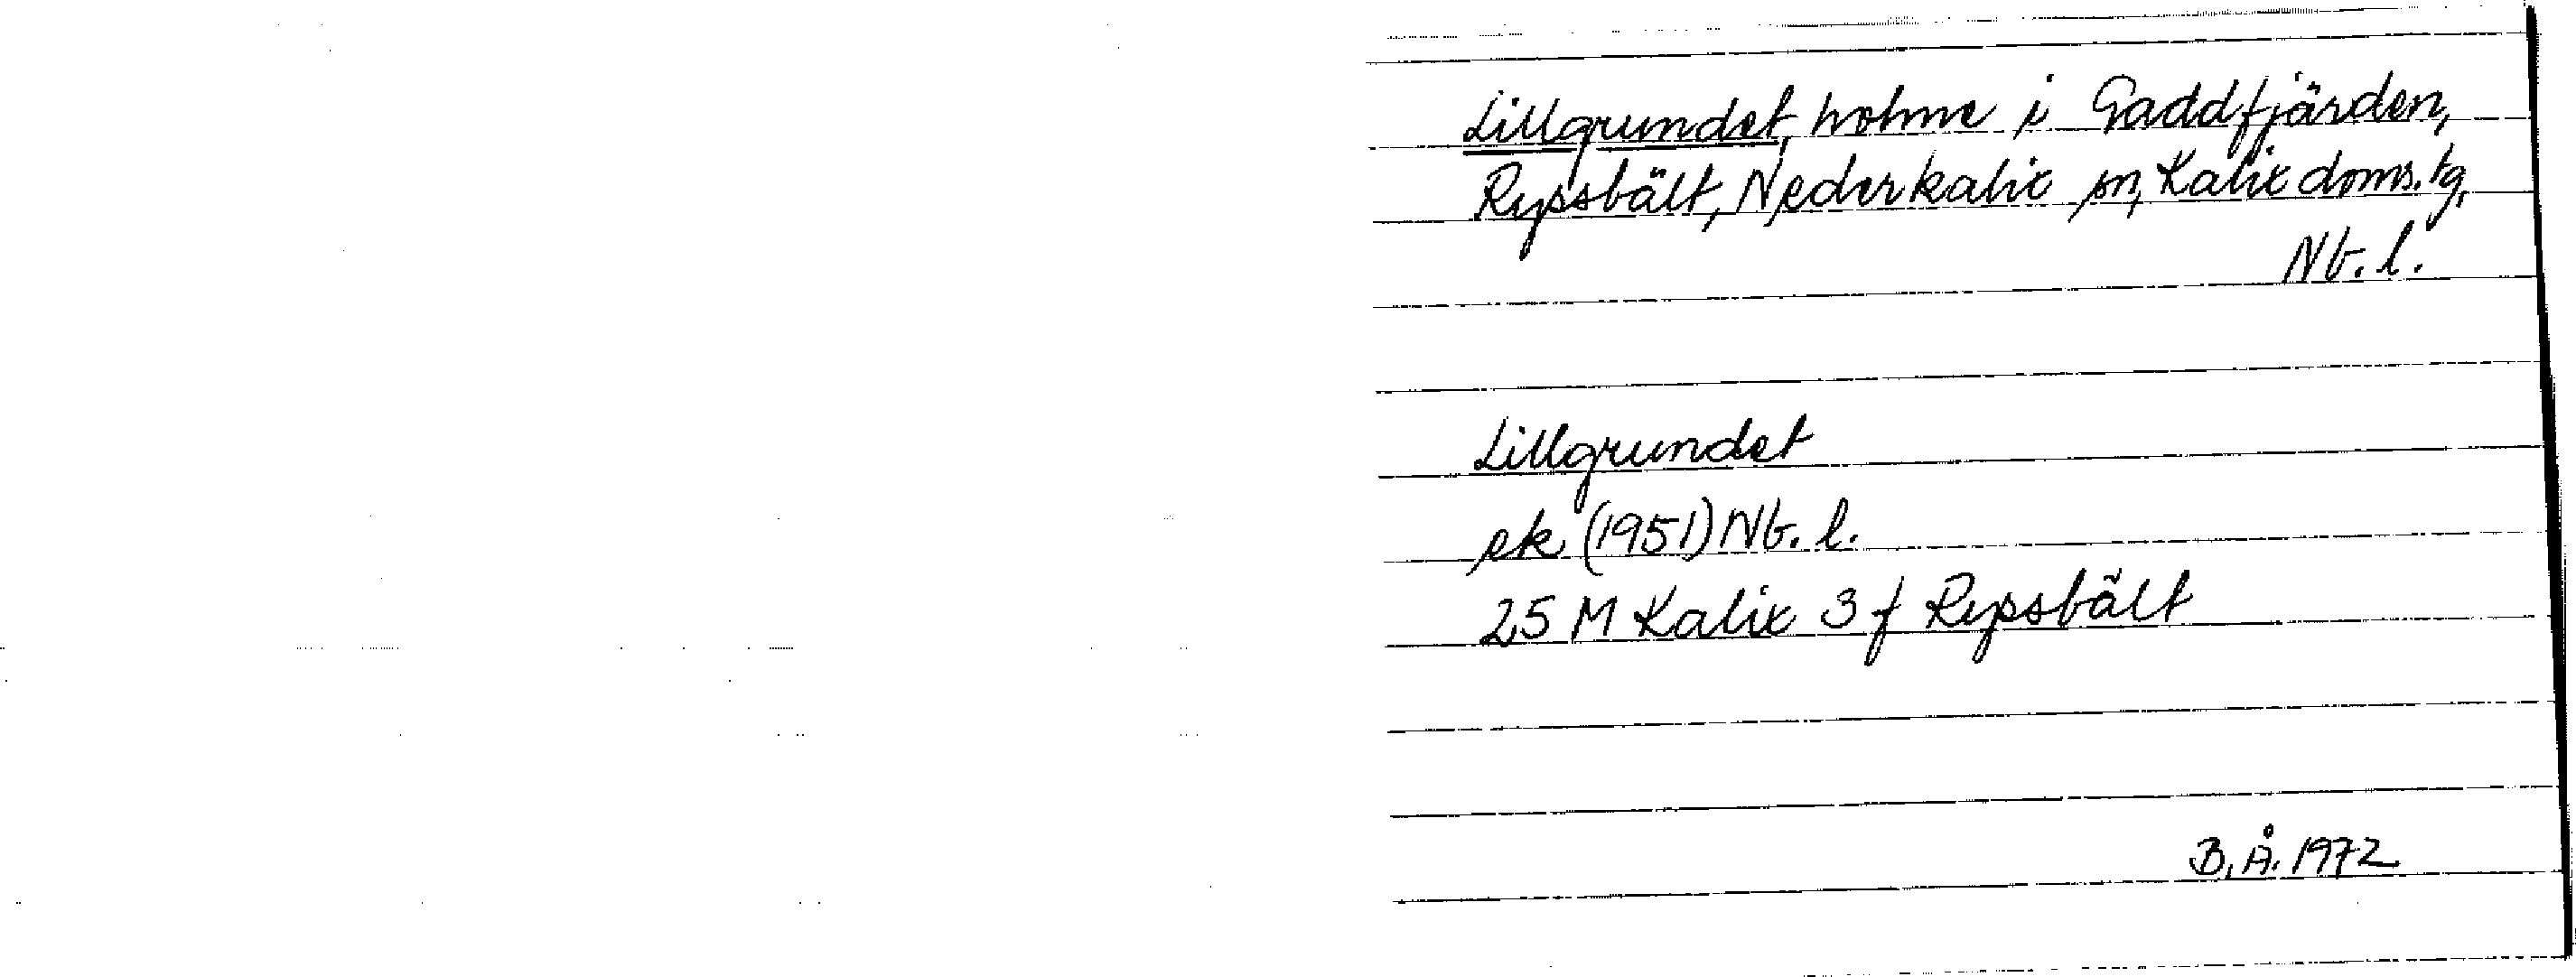 Lillgrundet, holme i Gaddfjärden,
Ryssbält, Nederkalix sn, Kalix doms. tg,
Nb. l.
Lillgrundet
ek (1951) Nb. l.
25 M Kalix 3 f Ryssbält
B. Å. 1972